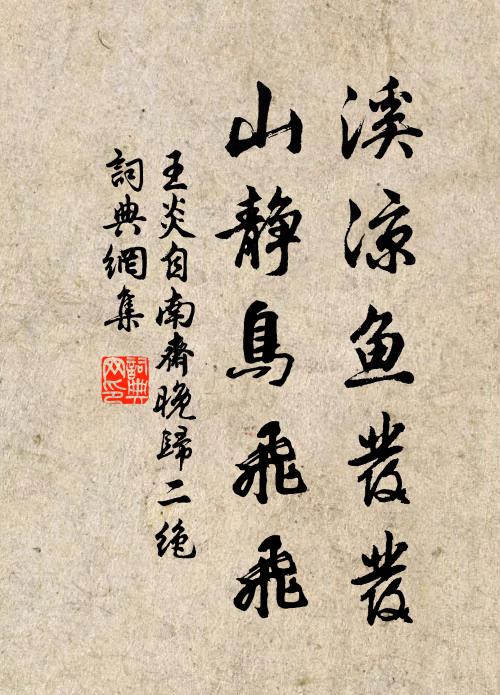 溪凉鱼發發
山静鳥飛飛
王炎自南齋晚歸二绝
詞典網集
詞典网印